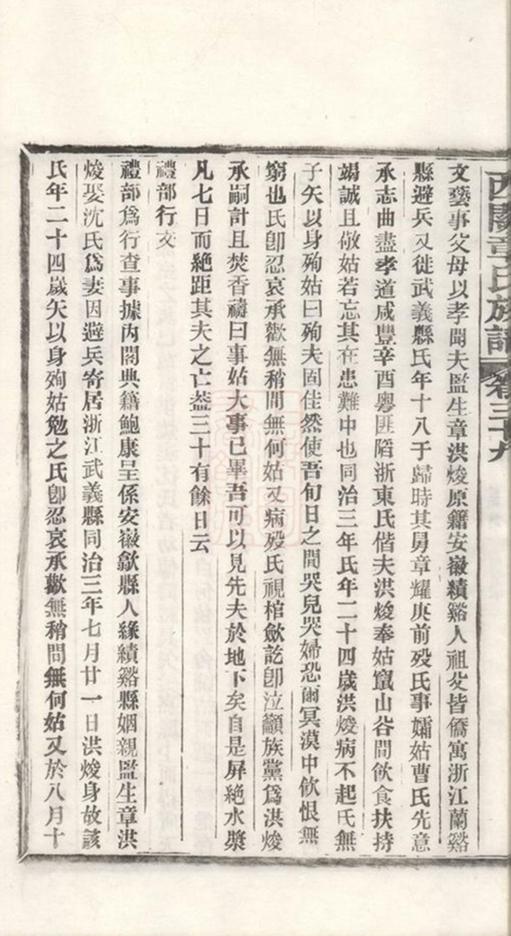 西關章氏族譜 卷三十九
文藝事父母以孝聞夫監生章洪焌原籍安徽績谿人祖父皆僑寓浙江蘭谿
縣避兵又徙武義縣氏年十八于歸時其舅章耀庚前歿氏事孀姑曹氏先意
承志曲盡孝道咸豐辛酉粵匪陷浙東氏偕夫洪焌奉姑竄山谷間飲食扶持
竭誠且敬姑若忘其在患難中也同治三年氏年二十四歲洪焌病不起氏無
子矢以身殉姑曰殉夫固佳然使吾旬日之間哭兒哭婦恐爾冥漠中飲恨無
窮也氏卽忍哀承歡無稍間無何姑又病歿氏視棺歛訖卽泣籲族黨爲洪焌
承嗣計且焚香禱曰事姑大事已畢吾可以見先夫於地下矣自是屏絕水漿
凡七日而絕距其夫之亡葢三十有餘日云
禮部行文
禮部爲行查事據內閣典籍鮑康呈係安徽歙縣人緣績谿縣姻親監生章洪
焌娶沈氏爲妻因避兵寄居浙江武義縣同治三年七月廿一日洪焌身故該
氏年二十四歲矢以身殉姑勉之氏卽忍哀承歡無稍間無何姑又於八月十